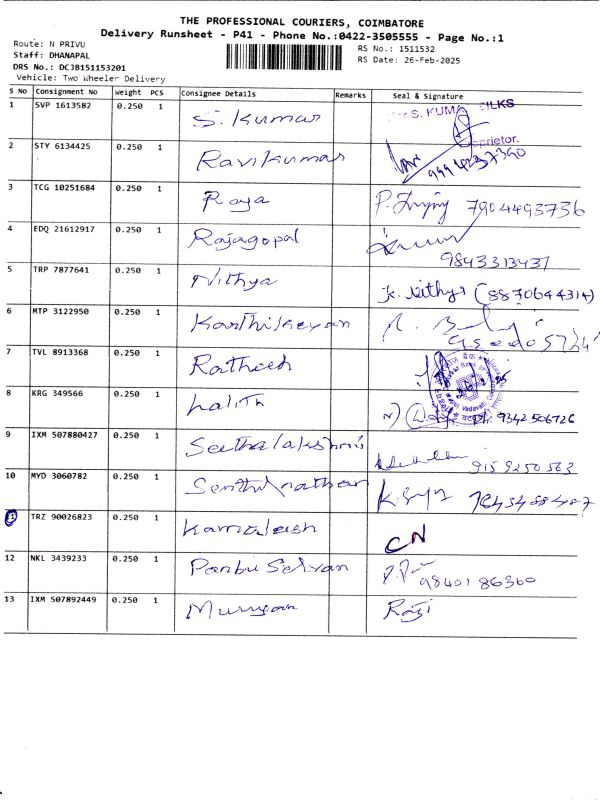 THE PROFESSIONAL COURIERS, COIMBATORE
Delivery Runsheet - P41 - Phone No.:0422-3505555 - Page No.:1
Route: N PRIVU
Staff: DHANAPAL
DRS No.: DCJB151153201
Vehicle: Two Wheeler Delivery
RS No.: 1511532
RS Date: 26-Feb-2025
S No Consignment No Weight PCS Consignee Details Remarks Seal & Signature
1 SVP 1613582 0.250 1 S. Kumar S. KUMA SILKS
Proprietor.
2 STY 6134425 0.250 1 Ravikumar 9994237390
3 TCG 10251684 0.250 1 Raja 7904493736
4 EDQ 21612917 0.250 1 Rajagopal 9843313437
5 TRP 7877641 0.250 1 Nithya K. Nithya (8870644314)
6 MTP 3122950 0.250 1 Karthikeyan
7 TVL 8913368 0.250 1 Ratheesh
8 KRG 349566 0.250 1 Lalith Ph: 9342506726
9 IXM 507880427 0.250 1 Seethalakshmi 9159250563
10 MYD 3060782 0.250 1 Senthilnathan
11 TRZ 90026823 0.250 1 Kamalesh CN
12 NKL 3439233 0.250 1 Panbu Selvan 9840186360
13 IXM 507892449 0.250 1 Murugan Raji